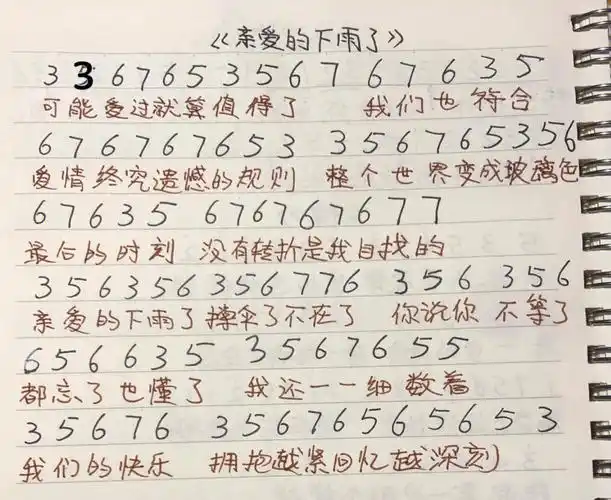 《亲爱的下雨了》
3 3 6 7 6 5 3 5 6 7 6 7 6 3 5
可能爱过就算值得了 我们也符合
6 7 6 7 6 7 6 5 3 3 5 6 7 6 5 3 5 6
爱情终究遗憾的规则 整个世界变成玻璃色
6 7 6 3 5 6 7 6 7 6 7 6 7 7
最后的时刻 没有转折是我自找的
3 5 6 3 5 6 3 5 6 7 7 6 3 5 6 3 5 6
亲爱的下雨了撑伞了不在了 你说你不等了
6 5 6 6 3 5 3 5 6 7 6 5 5
都忘了也懂了 我还一一细数着
3 5 6 7 6 3 5 6 7 6 5 6 5 6 5 3
我们的快乐 拥抱越紧回忆越深刻)